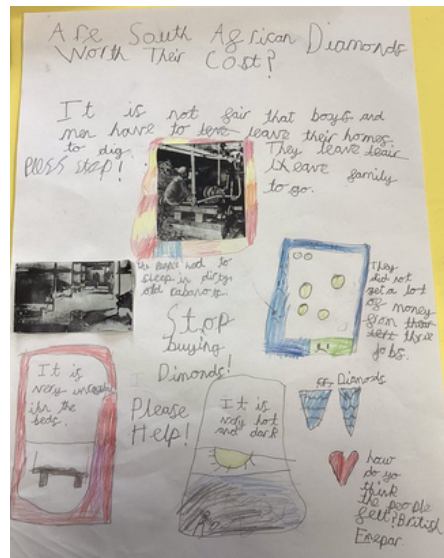 Are South African Diamonds
Worth Their Cost?
It is not fair that boys and
men have to leve leave their homes.
to dig.
They leave teair
PleSS stop!
leave family
to go.
The people had to
sleep in dirty
old cabanos.
They
did not
get a lot
of money
from ther
left thie
jobs.
Stop
buying
Dimonds!
It is
very
the
beds.
Please
Help!
It is
very hot
and dark
Dianods
how
do yo
think
the people
felt? British
Empar.